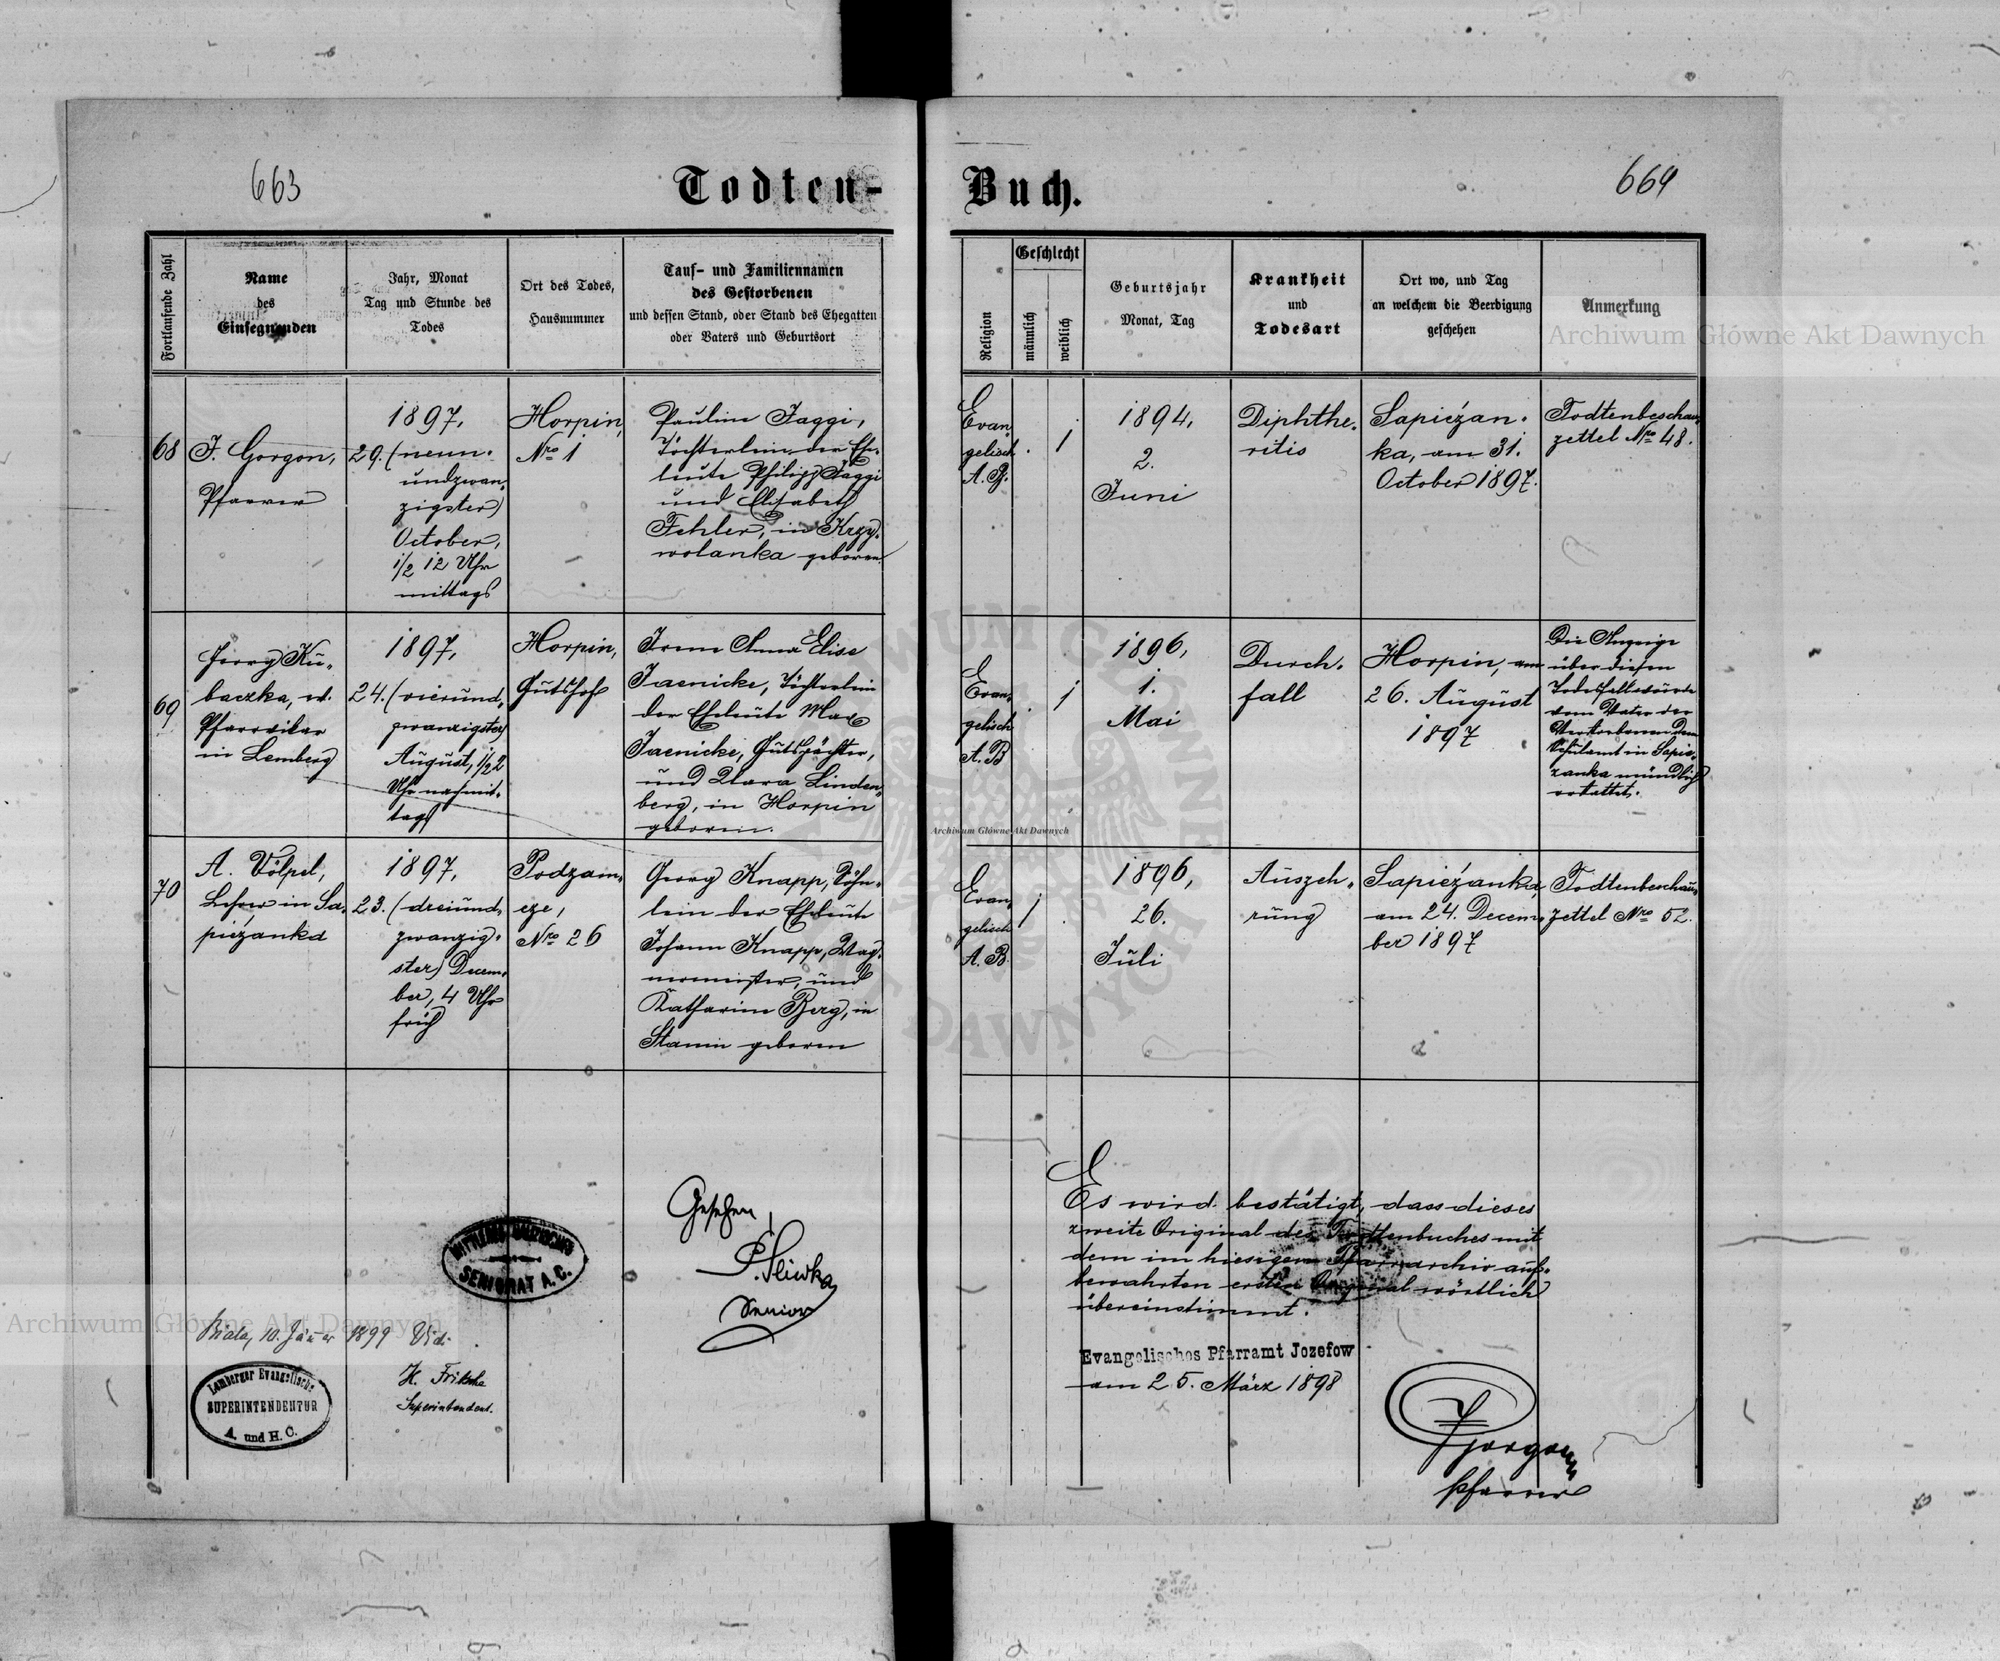 663
Todten-
Buch.
664
Fortlaufende Zahl
Name
des
Einsegnenden
Jahr, Monat
Tag und Stunde des
Todes
Ort des Todes,
Hausnummer
Tauf- und Familiennamen
des Gestorbenen
und dessen Stand, oder Stand des Ehegatten
oder Vaters und Geburtsort
Religion
Geschlecht
männlich
weiblich
Geburtsjahr
Monat, Tag
Krankheit
und
Todesart
Ort wo, und Tag
an welchem die Beerdigung
geschehen
Anmerkung
Archiwum Główne Akt Dawnych
68
J. Gorgon,
Pfarrer
1897,
29. (neun-
undzwan-
zigster)
October,
1/2 12 Uhr
mittags
Horpin,
Nro 1
Pauline Jaggi,
Töchterlein der Ehe-
leute Philipp Jaggi
und Elisabeth
Fehler, in Krzy-
wolanka geboren
Evan-
gelisch
A. B.
. 1
1894,
2.
Juni
Diphthe-
ritis
Sapieżan-
ka, am 31.
October 1897.
Todtenbeschau-
zettel Nro 48.
69
Georg Ku-
baczka, ev.
Pfarrvikar
in Lemberg
1897,
24. (vierund-
zwanzigster)
August, 1/2 2
Uhr nachmit-
tags
Horpin,
Gutshof
Irene Anna Elise
Jaenicke, Töchterlein
der Eheleute Max
Jaenicke, Gutspächter,
und Clara Linden-
berg, in Horpin
geboren.
Evan-
gelisch
A. B
. 1
1896,
1.
Mai
Durch-
fall
Horpin, am
26. August
1897
Die Anzeige
über diesen
Todesfall wurde
vom Vater der
Verstorbenen dem
Schulamt in Sapie-
zanka mündlich
erstattet.
Archiwum Główne Akt Dawnych
70
A. Völpel,
Lehrer in Sa-
pieżanka
1897,
23. (dreiund-
zwanzig-
ster) Decem-
ber, 4 Uhr
früh
Podzam-
cze,
Nro 26
Georg Knapp, Söhn-
lein der Eheleute
Johann Knapp, Wag-
nermeister, und
Katharine Berg, in
Stanin geboren
Evan-
gelisch
A. B.
1 .
1896,
26.
Juli
Auszeh-
rung
Sapieżanka,
am 24. Decem-
ber 1897
Todtenbeschau-
zettel Nro 52.
Gesehen,
P. Sliwka
Senior
SENIORAT A. C.
Archiwum Główne Akt Dawnych
Biala, 10. Jänner 1899 Vidi
H. Fritsche
Superintendent.
Lemberger Evangelische
SUPERINTENDENTUR
A. und H. C.
Es wird bestätigt, dass dieses
zweite Original des Todtenbuches mit
dem im hiesigen Pfarrarchiv auf-
bewahrten ersten Original wörtlich
übereinstimmt.
Evangelisches Pfarramt Jozefow
am 25. März 1898
J Gorgon
Pfarrer